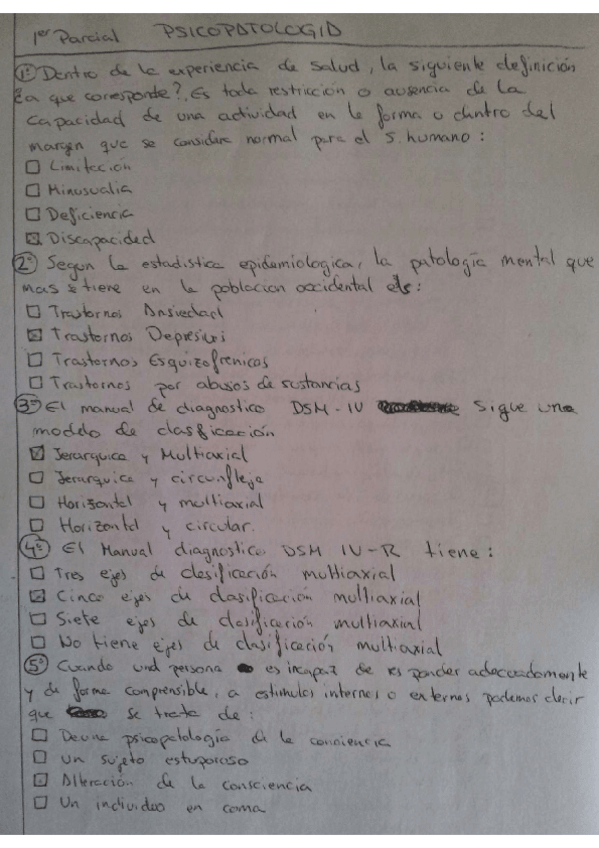 1er Parcial PSICOPATOLOGIA
1º Dentro de la experiencia de salud, la siguiente definición
¿a que corresponde?, Es toda restricción o ausencia de la
capacidad de una actividad en la forma o dentro del
margen que se considere normal para el S. humano:
Limitación
Minusvalia
Deficiencia
Discapacidad
2º Segun la estadistica epidemiologica, la patología mental que
mas tiene en la poblacion occidental es:
Trastornos Ansiedad
Trastornos Depresivos
Trastornos Esquizofrenicos
Trastornos por abusos de sustancias
3º El manual de diagnostico DSM-IV Sigue una
modelo de clasificación
Jerarquica y Multiaxial
Jerarquica y circunfleja
Horizontal y multiaxial
Horizontal y circular.
4º El Manual diagnostico DSM IV-R tiene:
Tres ejes de clasificación multiaxial
Cinco ejes de clasificación multiaxial
Siete ejes de clasificación multiaxial
No tiene ejes de clasificación multiaxial
5º Cuando una persona es incapaz de responder adecuadamente
y de forma comprensible, a estimulos internos o externos podemos decir
que se trata de:
De una psicopatología de la conciencia
Un sujeto estuporoso
Alteración de la consciencia
Un individuo en coma